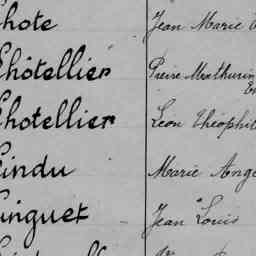 hote Jean Marie
hôtellier Pierre Mathurin
hotellier Léon Théophil
indu Marie Ange
inguet Jean Louis